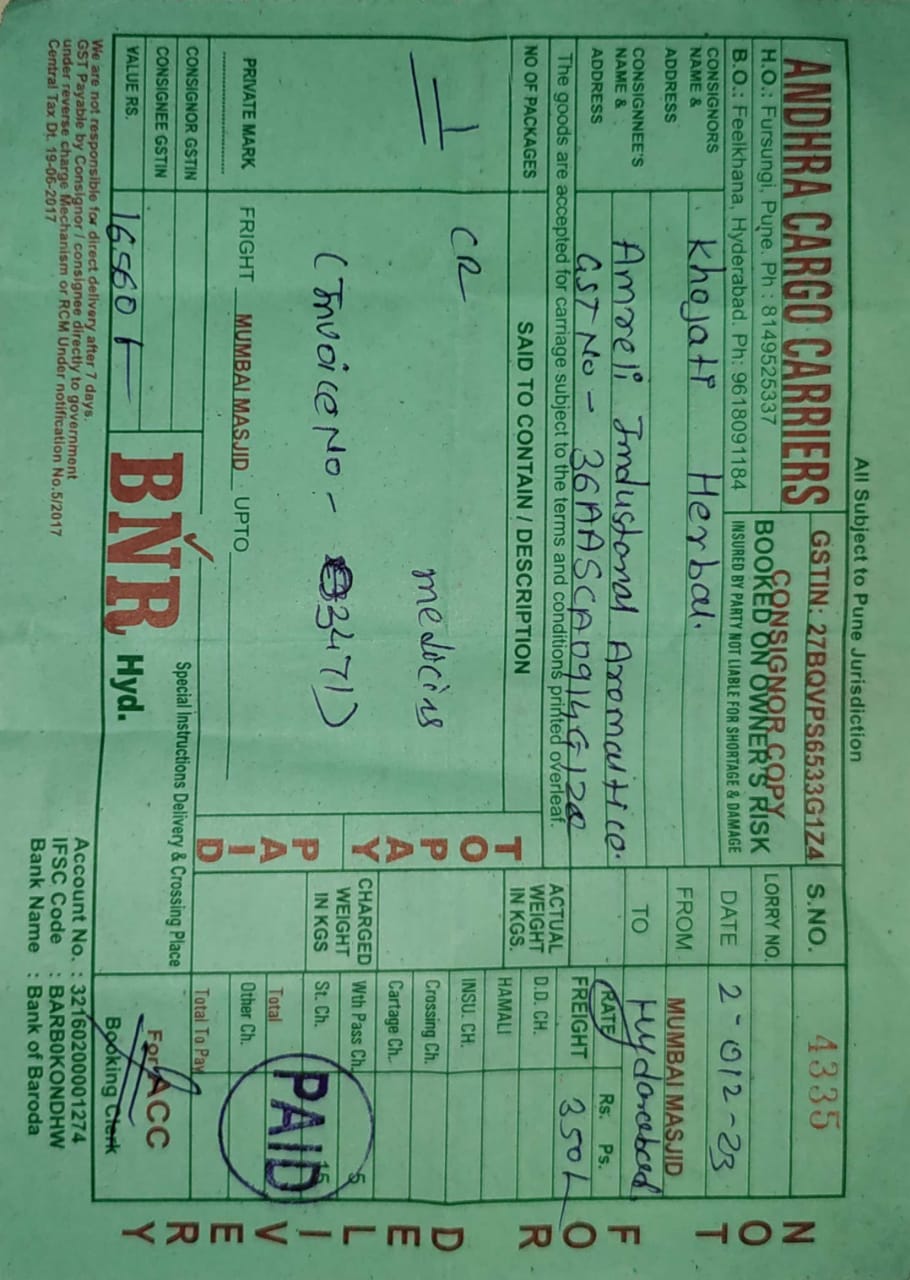 All Subject to Pune Jurisdiction
ANDHRA CARGO CARRIERS
GSTIN: 27BQVPS6533G1Z4
S.NO.
4335
H.O.: Fursungi, Pune. Ph : 8149525337
B.O.: Feelkhana, Hyderabad. Ph: 9618091184
CONSIGNOR COPY
BOOKED ON OWNER'S RISK
INSURED BY PARTY NOT LIABLE FOR SHORTAGE & DAMAGE
LORRY NO.
DATE
2-012-23
CONSIGNORS
NAME &
ADDRESS
Khojati Herbal.
FROM
MUMBAI MASJID
CONSIGNNEE'S
NAME &
ADDRESS
Amreli Industonal Aromatico.
GST No - 36AASCA0914G1Z0
TO
Hydarebad.
The goods are accepted for carriage subject to the terms and conditions printed overleaf.
NO OF PACKAGES
SAID TO CONTAIN / DESCRIPTION
ACTUAL
WEIGHT
IN KGS.
RATE
Rs. Ps.
FREIGHT
350/-
D.D. CH.
HAMALI
INSU. CH.
Crossing Ch.
Cartage Ch.
Wth Pass Ch.
5
St. Ch.
15
Total
Other Ch.
Total To Pay
1
CR
medicins
(Invoice No - 3471)
TO PAY
PAID
CHARGED
WEIGHT
IN KGS
PAID
PRIVATE MARK
FRIGHT MUMBAI MASJID UPTO
CONSIGNOR GSTIN
CONSIGNEE GSTIN
VALUE RS.
16560/-
BNR Hyd.
Special Instructions Delivery & Crossing Place
For ACC
Booking Clerk
NOT FOR DELIVERY
We are not responsible for direct delivery after 7 days.
GST Payable by Consignor / consignee directly to government
under reverse charge Mechanism or RCM Under notification No.5/2017
Central Tax Dt. 19-06-2017
Account No. : 32160200001274
IFSC Code : BARB0KONDHW
Bank Name : Bank of Baroda